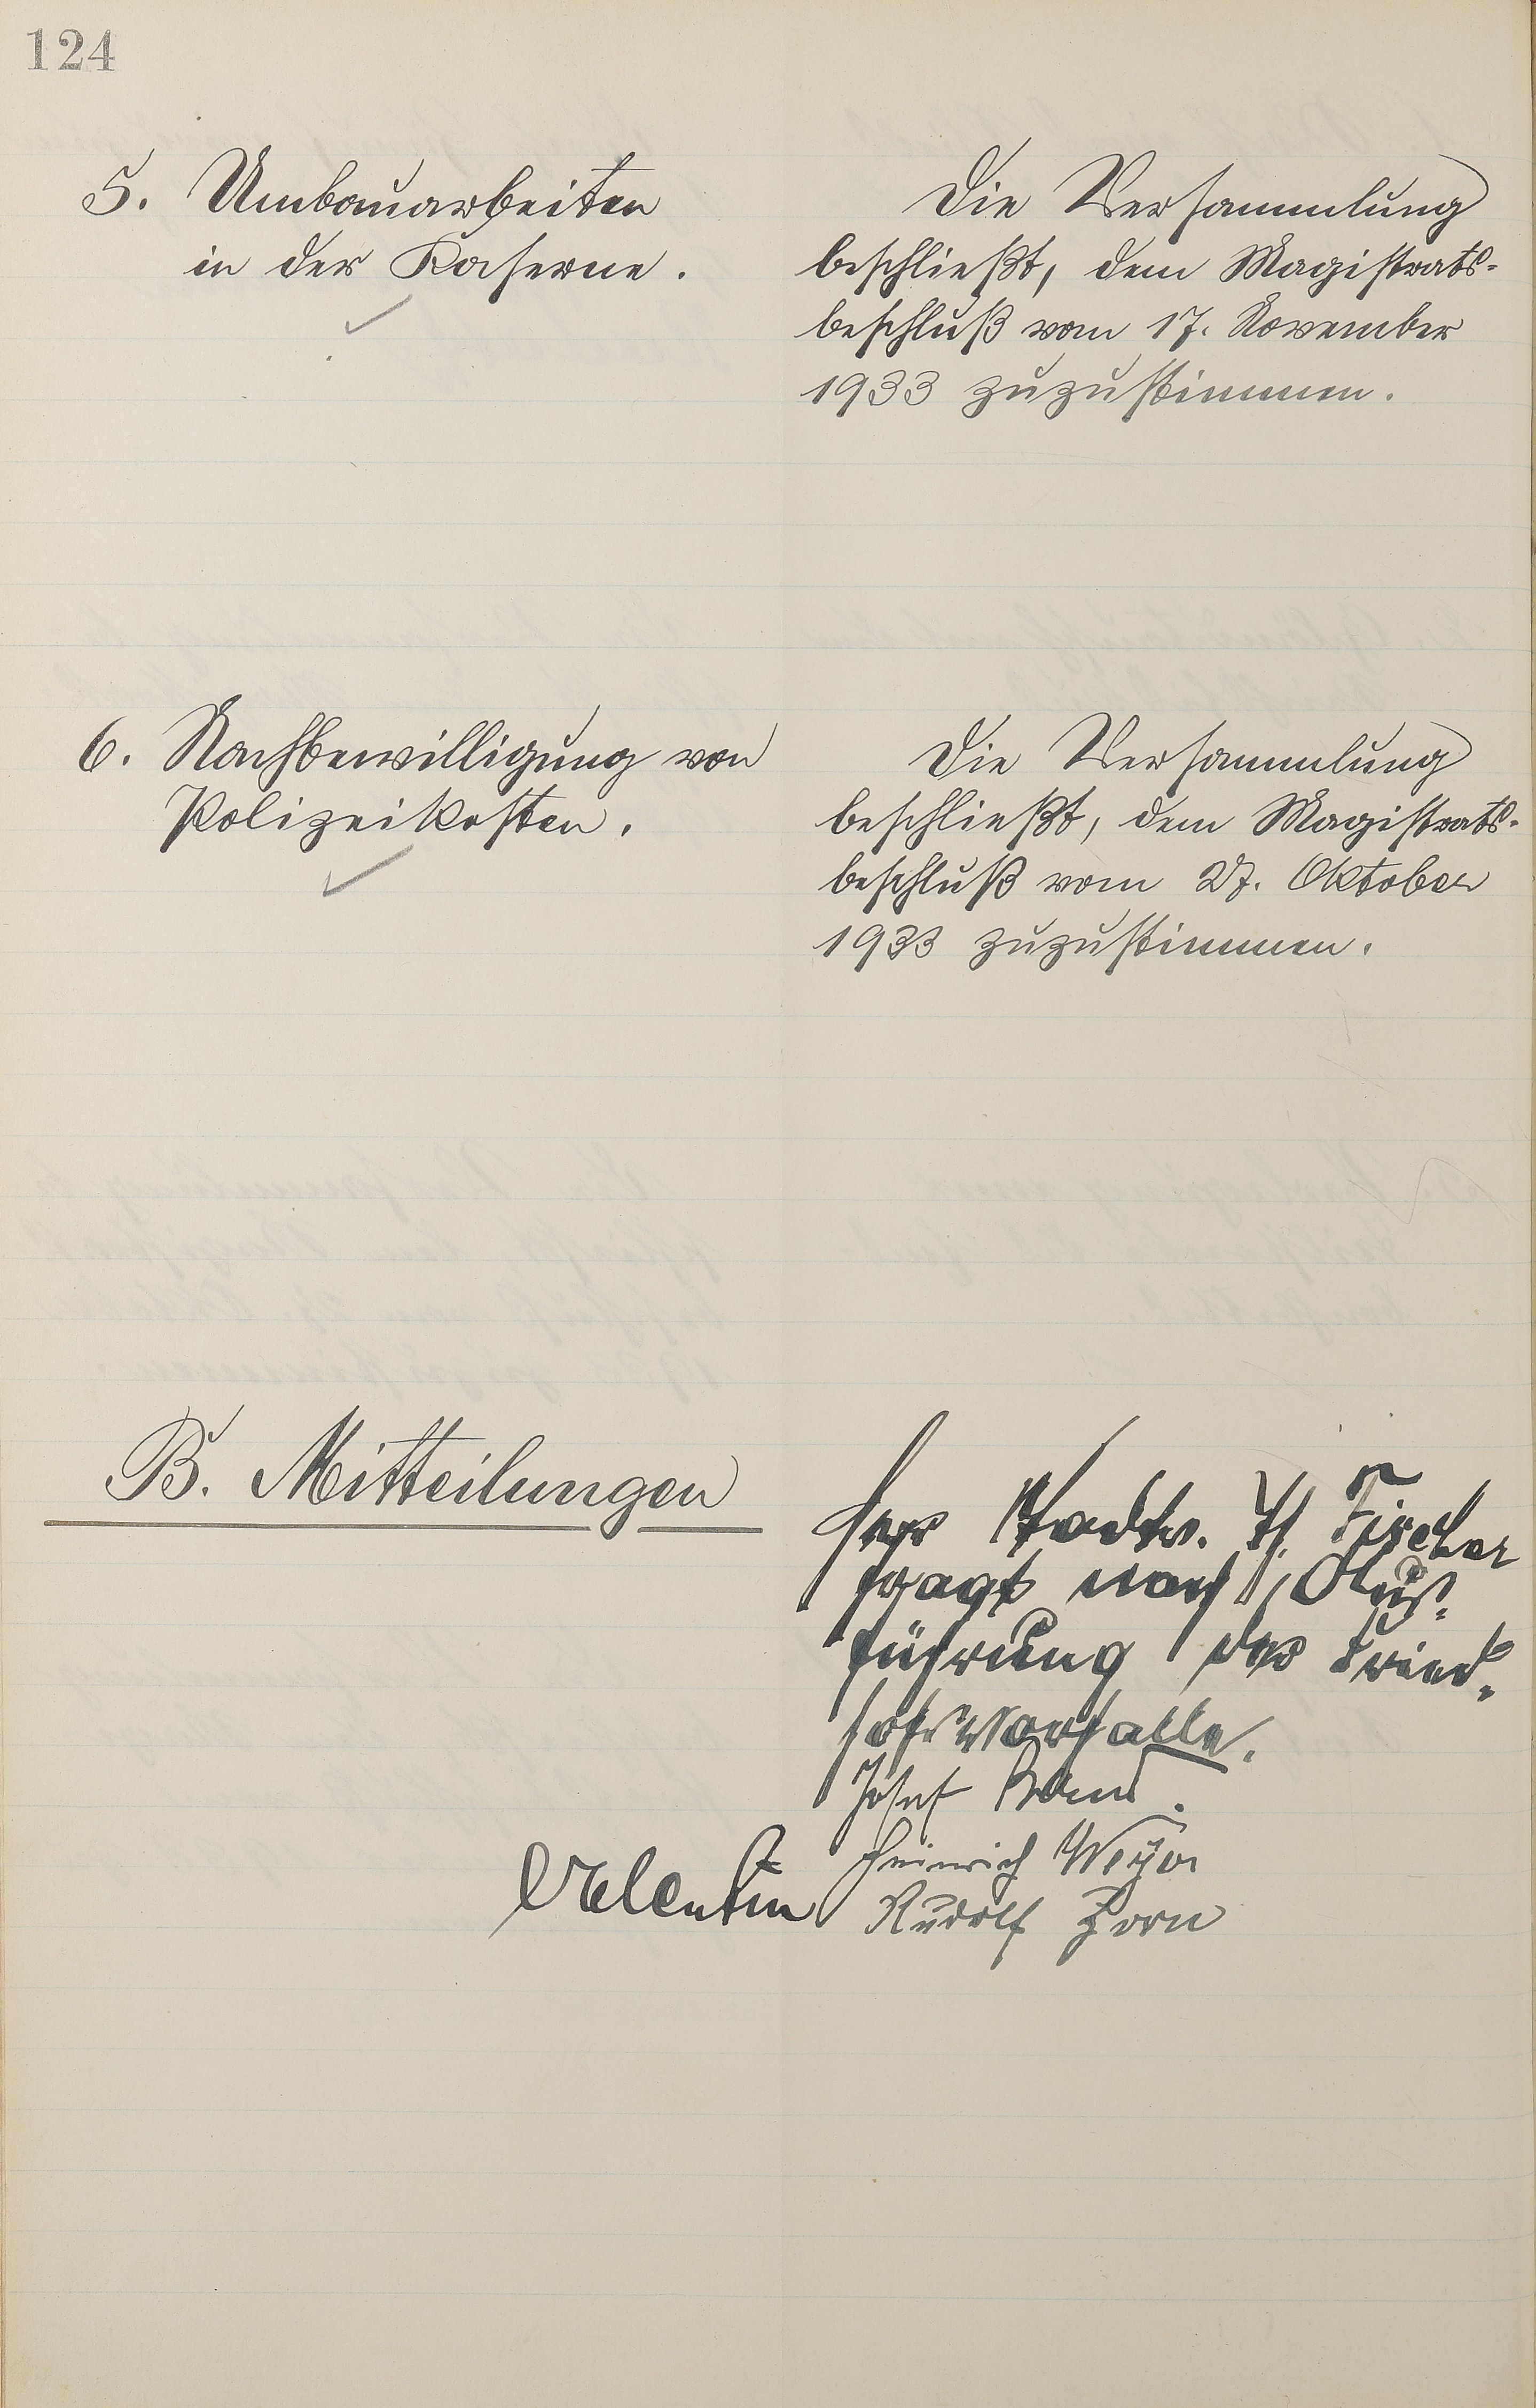 124
5. Umbauarbeiten
in der Kaserne.
Die Versammlung
beschließt, dem Magistrats-
beschluß vom 17. November
1933 zuzustimmen.
6. Nachbewilligung von
Polizeikosten.
Die Versammlung
beschließt, dem Magistrats-
beschluß vom 27. Oktober
1933 zuzustimmen.
B. Mitteilungen
Herr Stadtv. H. Fischer
fragt nach Aus-
führung der Fried-
hofs
Josef
Heinrich Weyer
Valentin
Rudolf Zorn